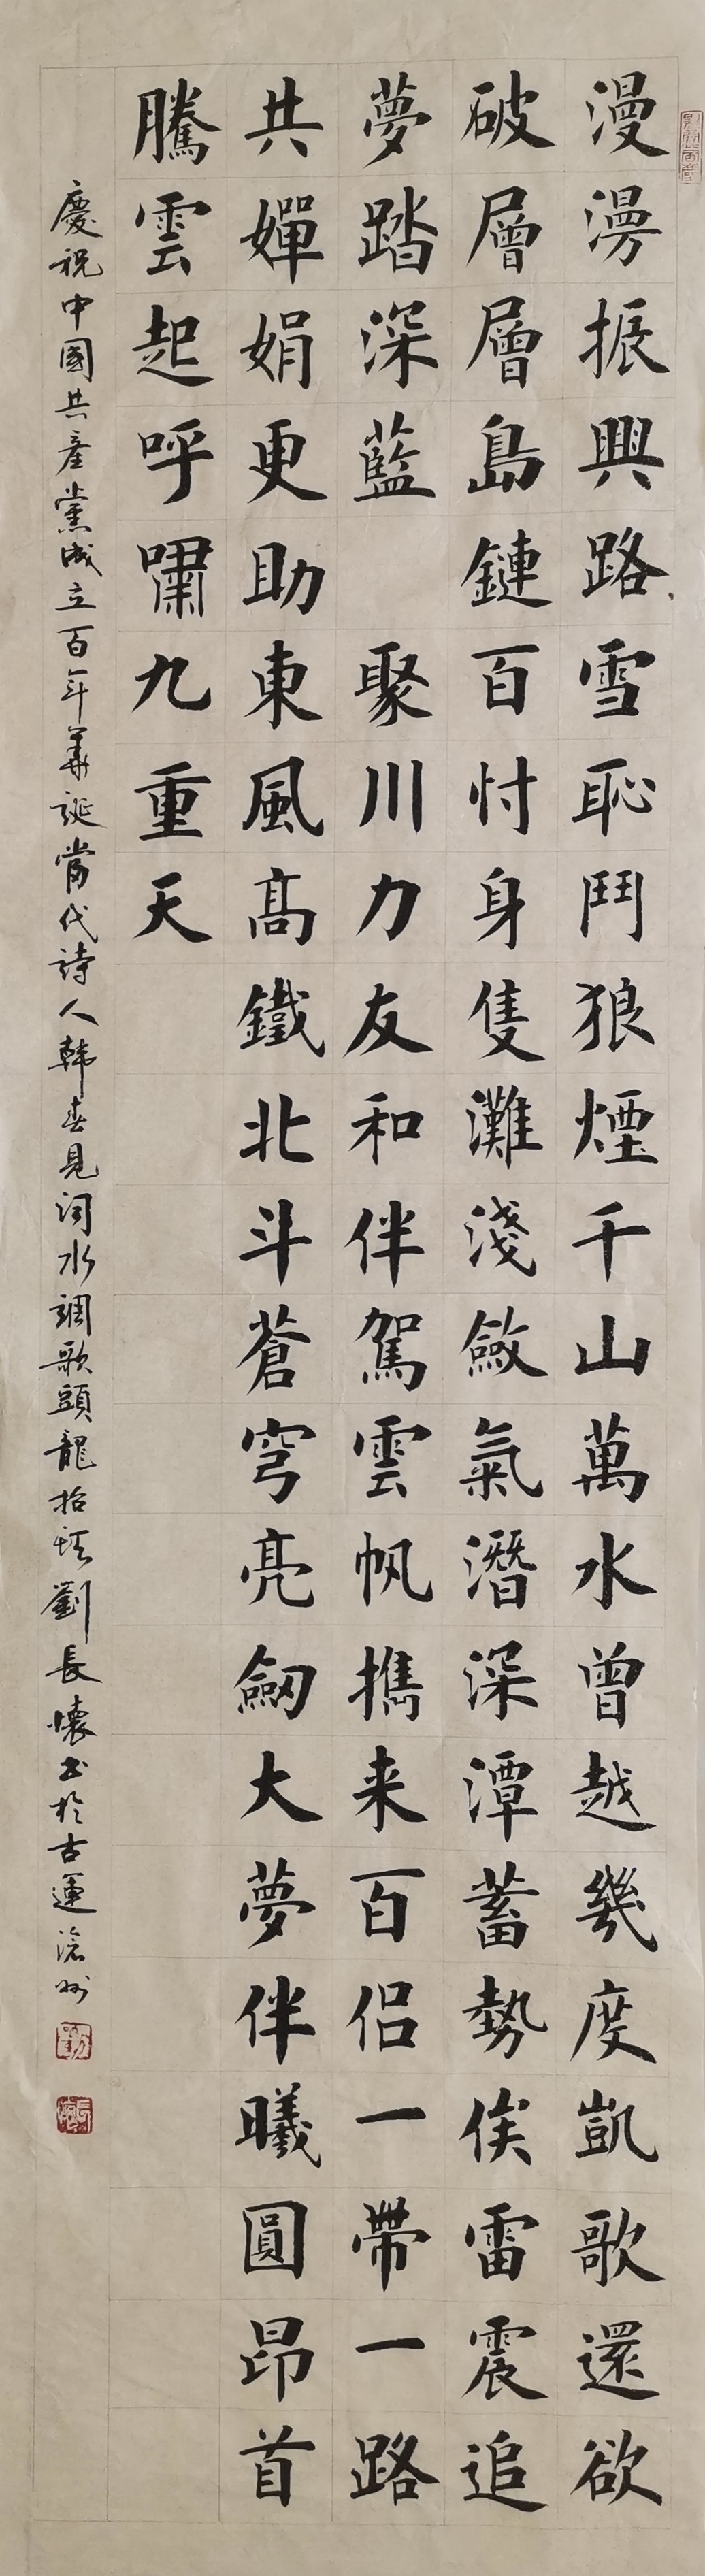 漫漫振興路雪恥鬥狼煙千山萬水曾越幾度凱歌還欲
破層層島鏈百忖身隻灘淺斂氣潛深潭蓄勢俟雷震追
夢踏深藍 聚川力友和伴駕雲帆攜来百侣一帶一路
共嬋娟更助東風高鐵北斗蒼穹亮劒大夢伴曦圓昂首
騰雲起呼嘯九重天
慶祝中國共產黨成立百年華誕當代詩人韩春見词水調歌頭龍抬頭劉長懷书於古運滄州